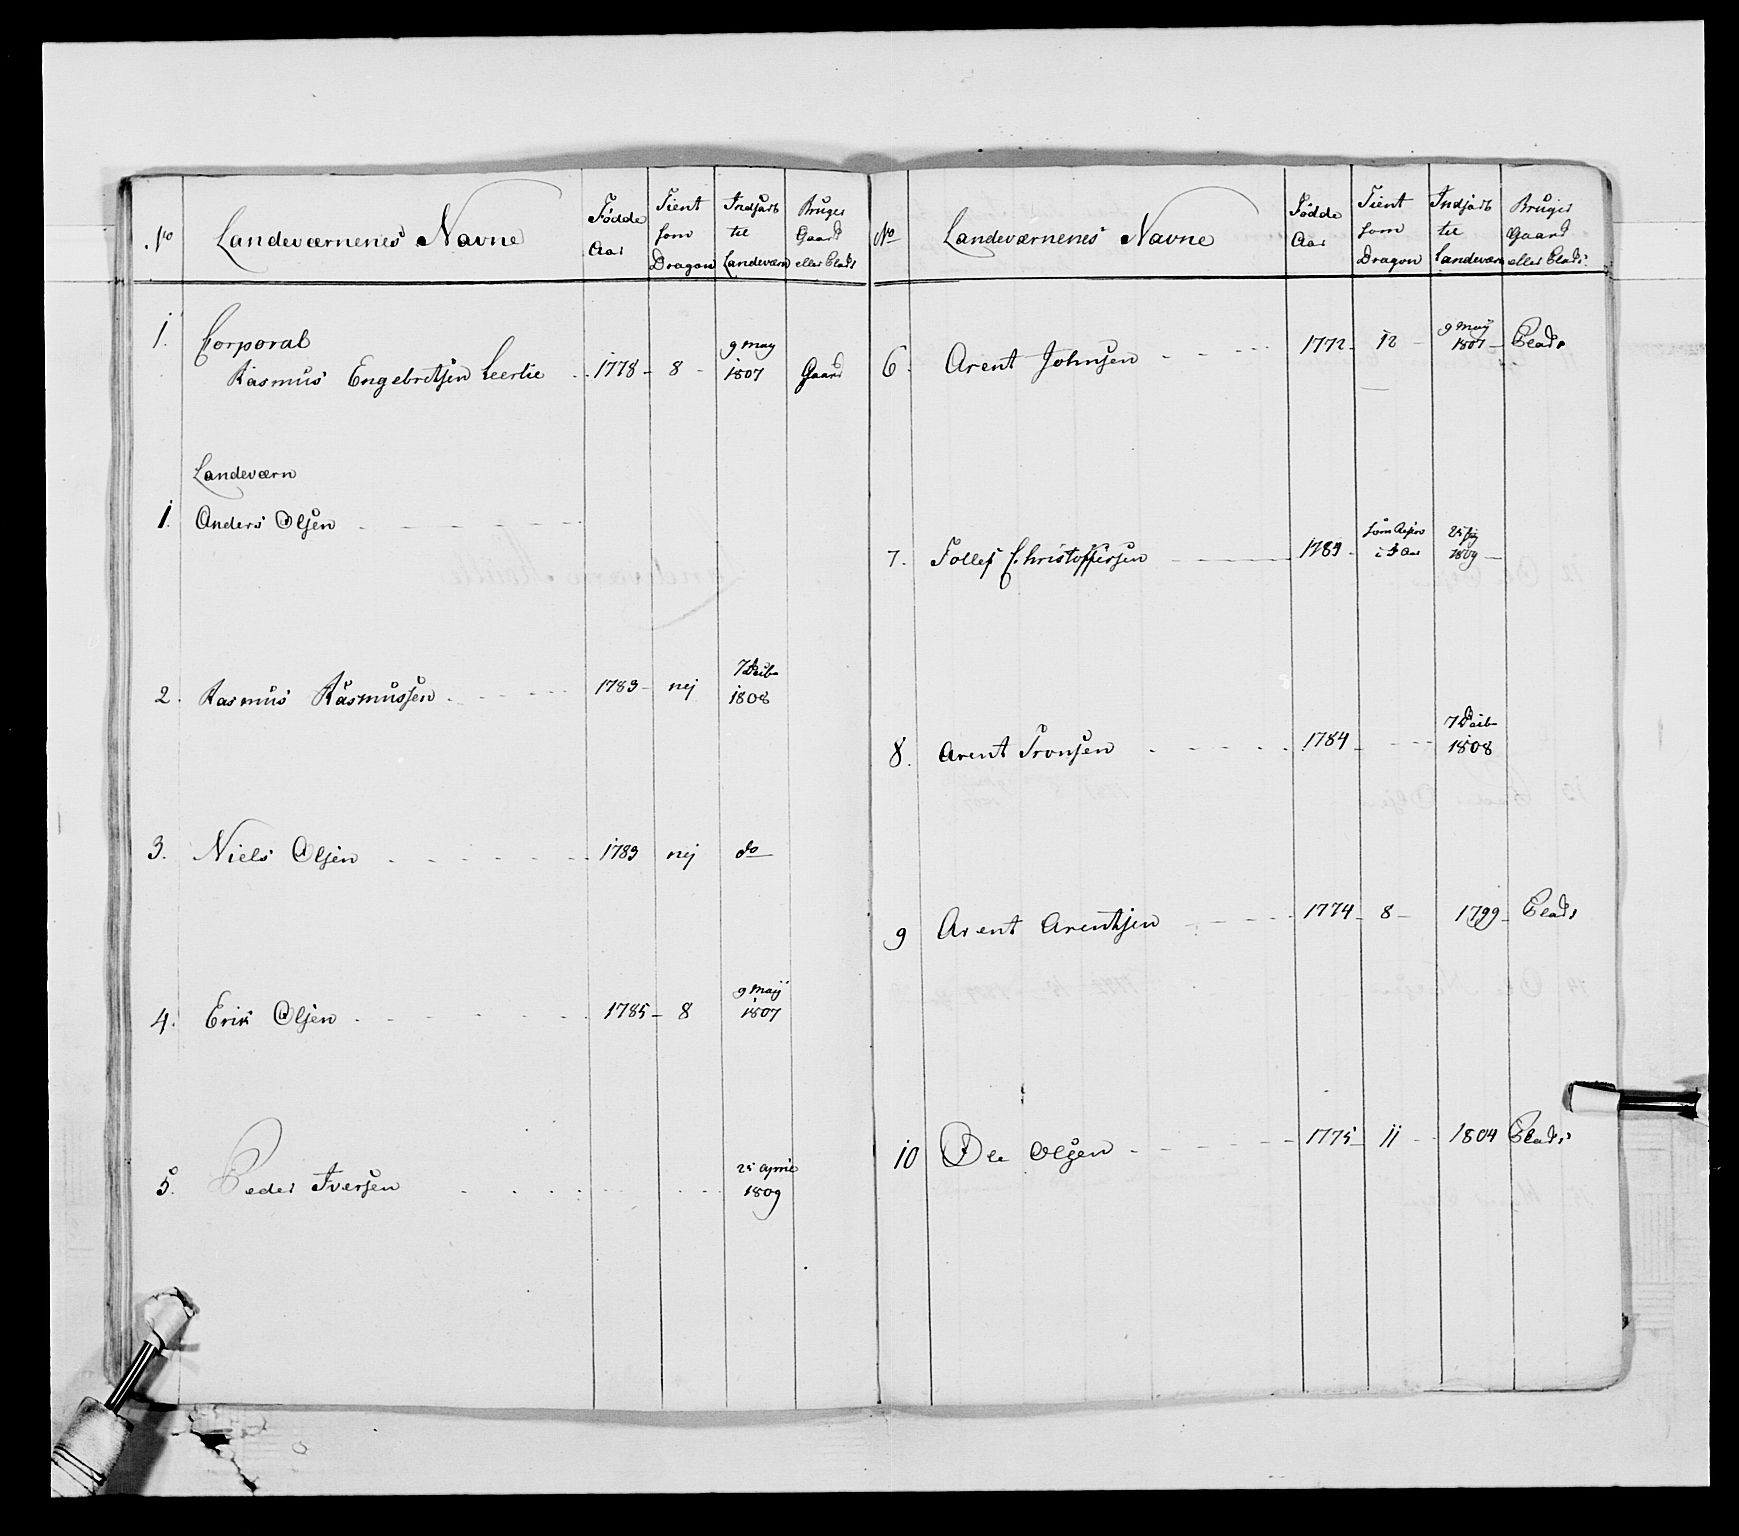 No Landeværnenes Navne Fødde Aar Tient som Dragon Indført til Landeværn Bruger Gaard eller Plads
1. Corporal
Rasmus Engebretsen Leerlie 1778 8 9 May 1807 Gaard
Landeværn
1. Anders Olsen
2. Rasmus Rasmussen 1783 nej 7 Decbr 1808
3. Niels Olsen 1783 nej do
4. Erik Olsen 1785 8 9 Maij 1807
5. Peder Iversen 25 April 1809
No Landeværnenes Navne Fødde Aar Tient som Dragon Indført til Landeværn Bruger Gaard eller Plads
6. Arent Johnsen 1772 12 9 Maij 1807 Plads
7. Tollef Christoffersen 1789 som i Aar 1809
8. Arent Tronsen 1784 7 Decbr 1808
9 Arent Arentsen 1774 8 1799 Plads
10 Ole Olsen 1775 11 1804 Plads